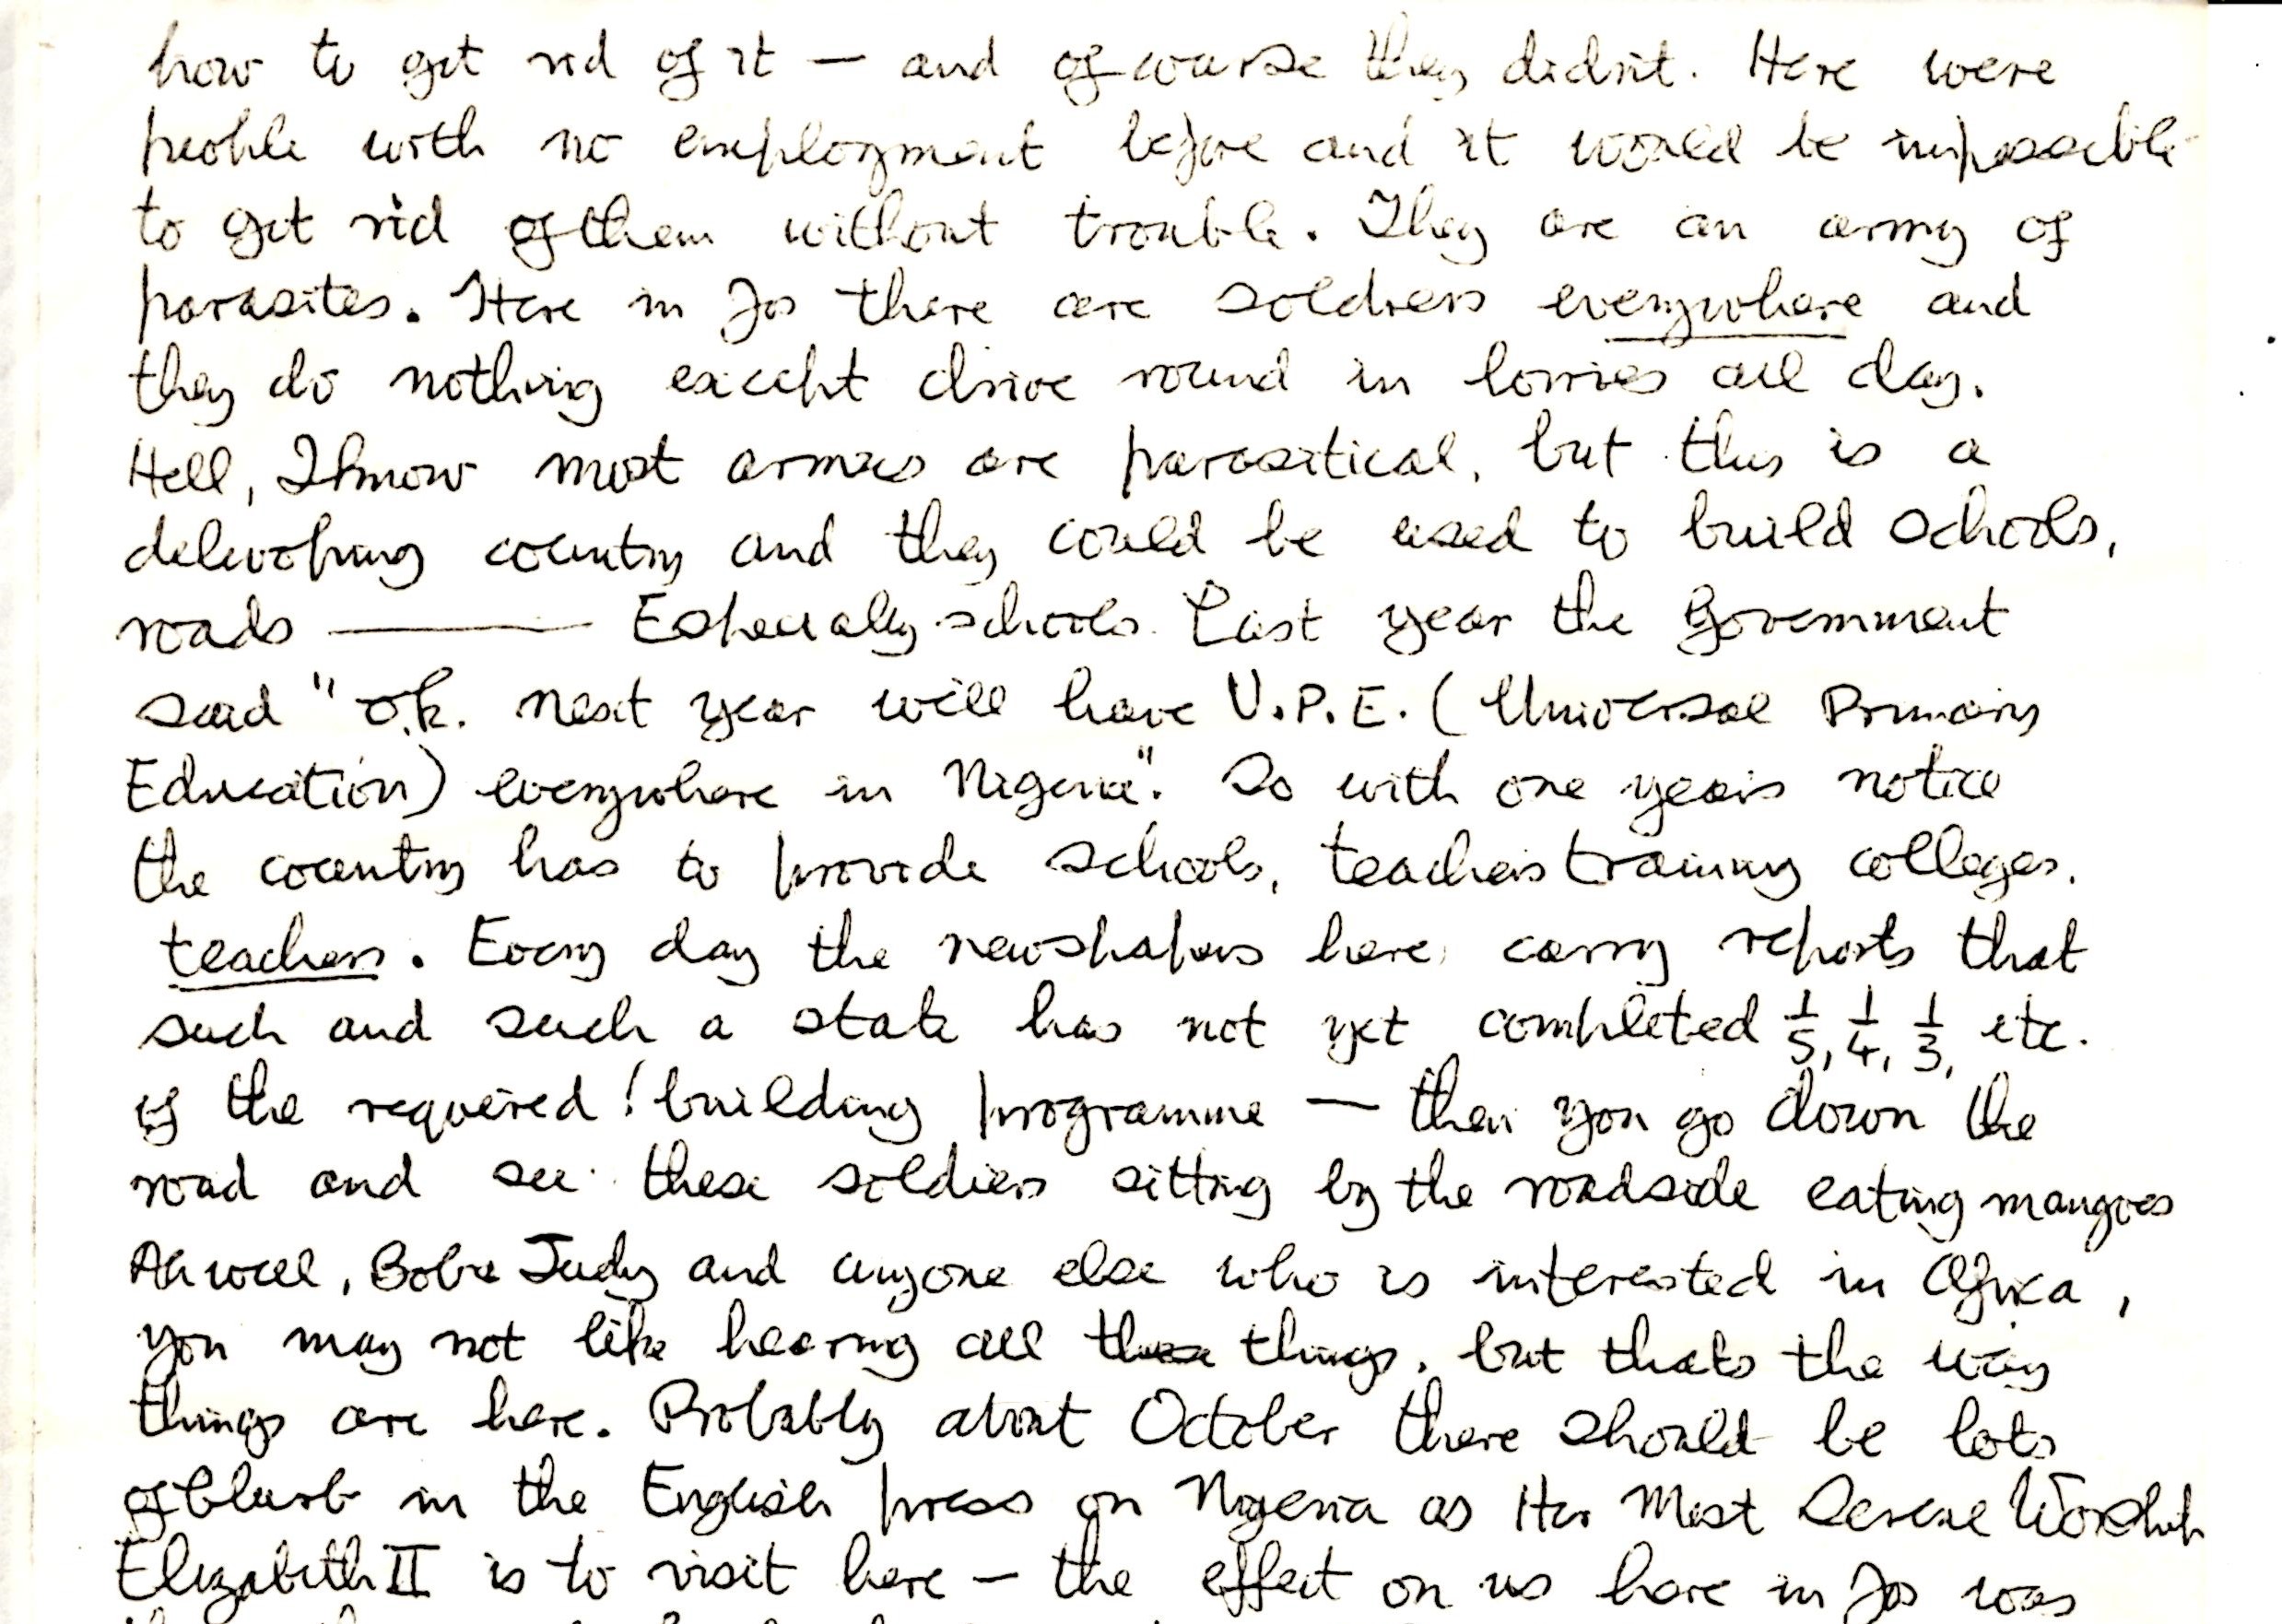 how to get rid of it — and of course they didn't. Here were
people with no employment before and it would be impossible
to get rid of them without trouble. They are an army of
parasites. Here in Jos there are soldiers everywhere and
they do nothing except drive round in lorries all day.
Hell, I know most armies are parasitical, but this is a
delevoping country and they could be used to build schools,
roads ——— Especially schools. Last year the Government
said "o.k. next year will have U.P.E. (Universal Primary
Education) everywhere in Nigeria". So with one years notice
the country has to provide schools, teachers training colleges,
teachers. Every day the newspapers here carry reports that
such and such a state has not yet completed 1/5, 1/4, 1/3, etc.
of the required building programme — then you go down the
road and see these soldiers sitting by the roadside eating mangoes
Ah well, Bob & Judy and anyone else who is interested in Africa,
you may not like hearing all these things, but thats the way
things are here. Probably about October there should be lots
of blurb in the English press on Nigeria as Her Most Serene Worship
Elizabeth II is to visit here — the effect on us here in Jos was